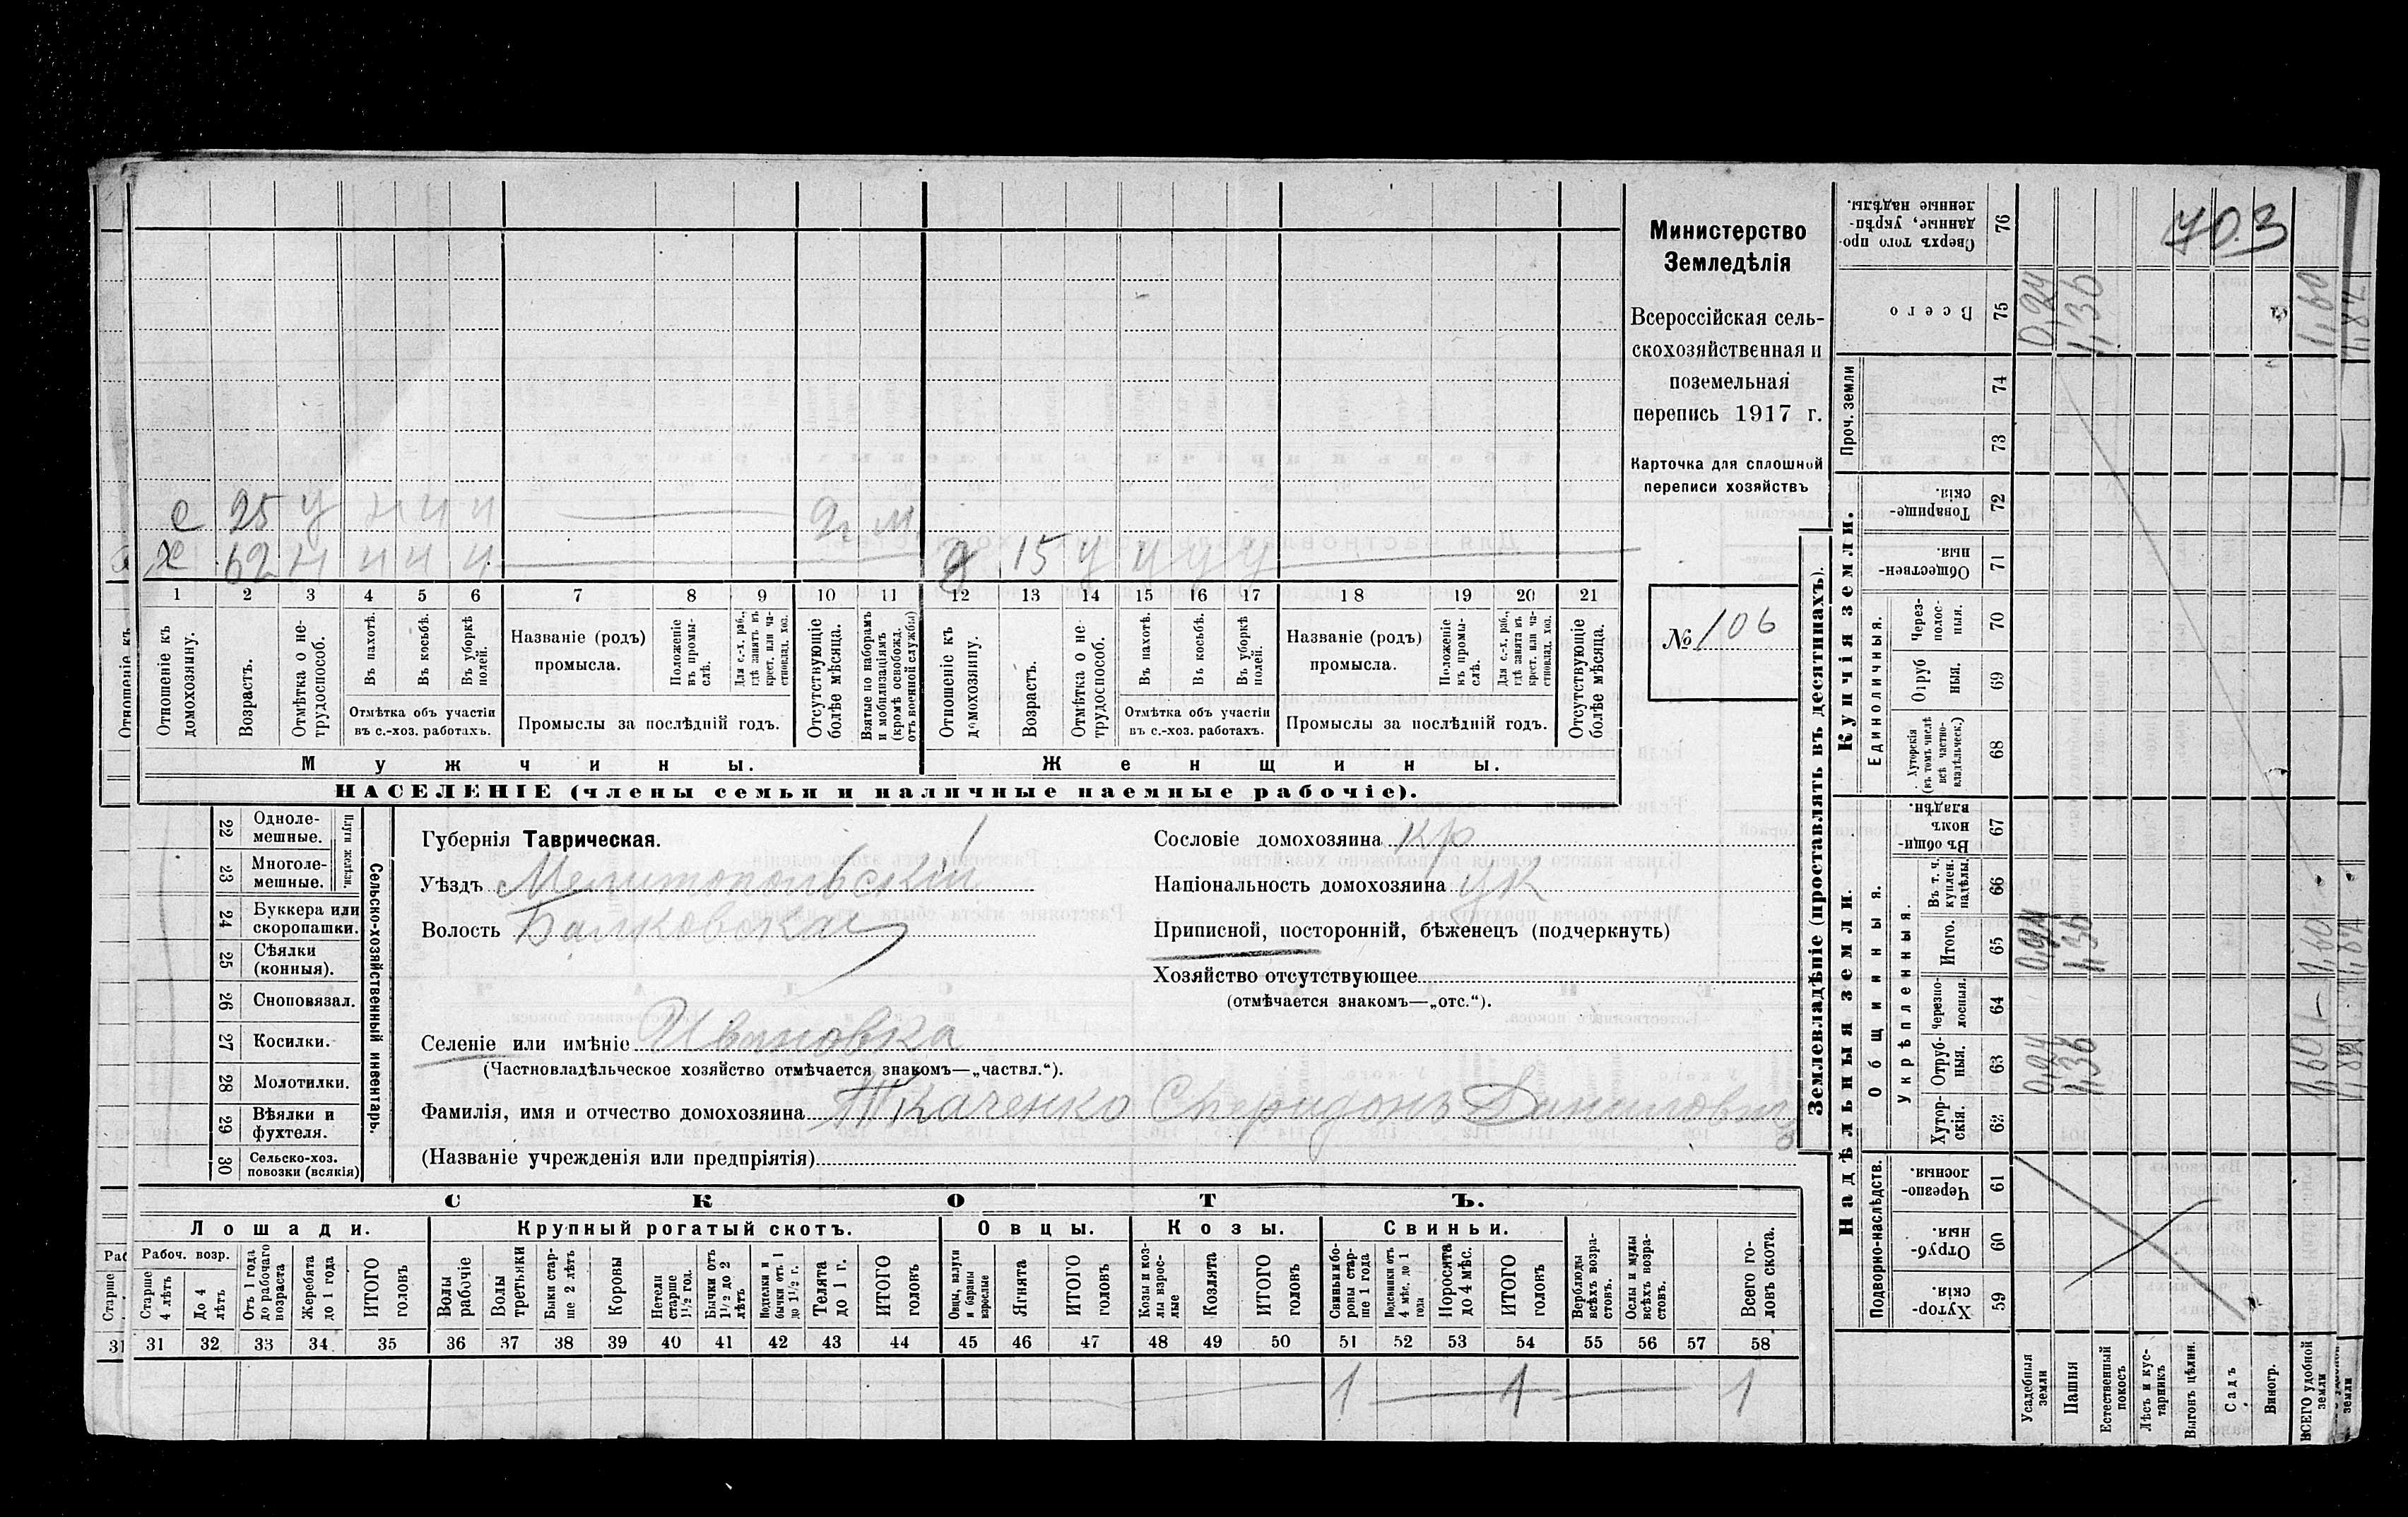 703
Министерство
Земледѣлія
Всероссійская сель-
скохозяйственная и
поземельная
перепись 1917 г.
Карточка для сплошной
переписи хозяйствъ
№ 106
с 25 у н н н
х 62 н н н н
д 15 у у у у
1 2 3 4 5 6 7 8 9 10 11 12 13 14 15 16 17 18 19 20 21
Отношеніе къ
домохозяину.
Возрастъ.
Отмѣтка о не-
трудоспособ.
Въ пахотѣ.
Въ косьбѣ.
Въ уборкѣ
полей.
Отмѣтка объ участіи
въ с.-хоз. работахъ.
Названіе (родъ)
промысла.
Положеніе
въ промы-
слѣ.
Для с.-х. раб.,
гдѣ занятъ въ
крест. или ча-
стновлад. хоз.
Промыслы за послѣдній годъ.
Отсутствующіе
болѣе мѣсяца.
Взятые по наборамъ
и мобилизаціямъ
(кромѣ освобожд.
отъ военной службы)
Отношеніе къ
домохозяину.
Возрастъ.
Отмѣтка о не-
трудоспособ.
Въ пахотѣ.
Въ косьбѣ.
Въ уборкѣ
полей.
Отмѣтка объ участіи
въ с.-хоз. работахъ.
Названіе (родъ)
промысла.
Положеніе
въ промы-
слѣ.
Для с.-х. раб.,
гдѣ занята въ
крест. или ча-
стновлад. хоз.
Промыслы за послѣдній годъ.
Отсутствующіе
болѣе мѣсяца.
Мужчины.
Женщины.
НАСЕЛЕНІЕ (члены семьи и наличные наемные рабочіе).
22 Одноле-
мешные.
23 Многоле-
мешные.
Плуги желѣзн.
24 Буккера или
скоропашки.
25 Сѣялки
(конныя).
26 Сноповязал.
27 Косилки.
28 Молотилки.
29 Вѣялки и
фухтеля.
30 Сельско-хоз.
повозки (всякія)
Сельско-хозяйственный инвентарь.
Губернія Таврическая.
Уѣздъ Мелитопольскій
Волость Балковская
Сословіе домохозяина кр
Національность домохозяина ук
Приписной, посторонній, бѣженецъ (подчеркнуть)
Хозяйство отсутствующее
(отмѣчается знакомъ—„отс.“).
Селеніе или имѣніе Ивановка
(Частновладѣльческое хозяйство отмѣчается знакомъ—„частвл.“).
Фамилія, имя и отчество домохозяина Ткаченко Спиридонъ Даниловичъ
(Названіе учрежденія или предпріятія)
СКОТЪ.
Лошади.
Крупный рогатый скотъ.
Овцы.
Козы.
Свиньи.
Рабоч. возр.
Старше
4 лѣтъ
До 4
лѣтъ
Отъ 1 года
до рабочаго
возраста
Жеребята
до 1 года
ИТОГО
головъ
Волы
рабочіе
Волы
третьяки
Быки стар-
ше 2 лѣтъ
Коровы
Нетели
старше
1½ год.
Бычки отъ
1½ до 2
лѣтъ
Подтелки и
бычки отъ 1
до 1½ г.
Телята
до 1 г.
ИТОГО
головъ
Овцы, валухи
и бараны
взрослые
Ягнята
ИТОГО
головъ
Козы и коз-
лы взрос-
лые
Козлята
ИТОГО
головъ
Свиньи и бо-
ровы стар-
ше 1 года
Подсвинки отъ
4 мѣс. до 1
года
Поросята
до 4 мѣс.
ИТОГО
головъ
Верблюды
всѣхъ возра-
стовъ.
Ослы и мулы
всѣхъ возра-
стовъ.
Всего го-
ловъ скота.
31 32 33 34 35 36 37 38 39 40 41 42 43 44 45 46 47 48 49 50 51 52 53 54 55 56 57 58
1 1 1
Землевладѣніе (проставлять въ десятинахъ).
Надѣльныя земли.
Купчія земли.
Проч. земли
Подворно-наслѣдств.
Общинныя.
Укрѣпленныя.
Единоличныя.
Сверхъ того про-
данные, укрѣп-
ленные надѣлы. 76
Всего 75 0,24 1,36 1,60
74
73
Товарище-
скія. 72
Обществен-
ныя. 71
Через-
полос-
ныя. 70
Отруб
ныя. 69
Хуторскія
(въ томъ числѣ
всѣ частно-
владѣльческ.) 68
Въ общин-
номъ
владѣн. 67
Въ т. ч.
куплен.
надѣлы. 66
Итого. 65 0,24 1,36 1,60
Черезпо-
лосныя. 64
Отруб-
ныя. 63 0,24 1,36 1,60
Хутор-
скія. 62
Черезпо-
лосныя. 61
Отруб-
ныя. 60
Хутор-
скія. 59
Усадебныя
земли
Пашня
Естественный
покосъ
Лѣсъ и кус-
тарникъ
Выгонъ цѣлин.
Садъ
Виногр.
ВСЕГО удобной
земли